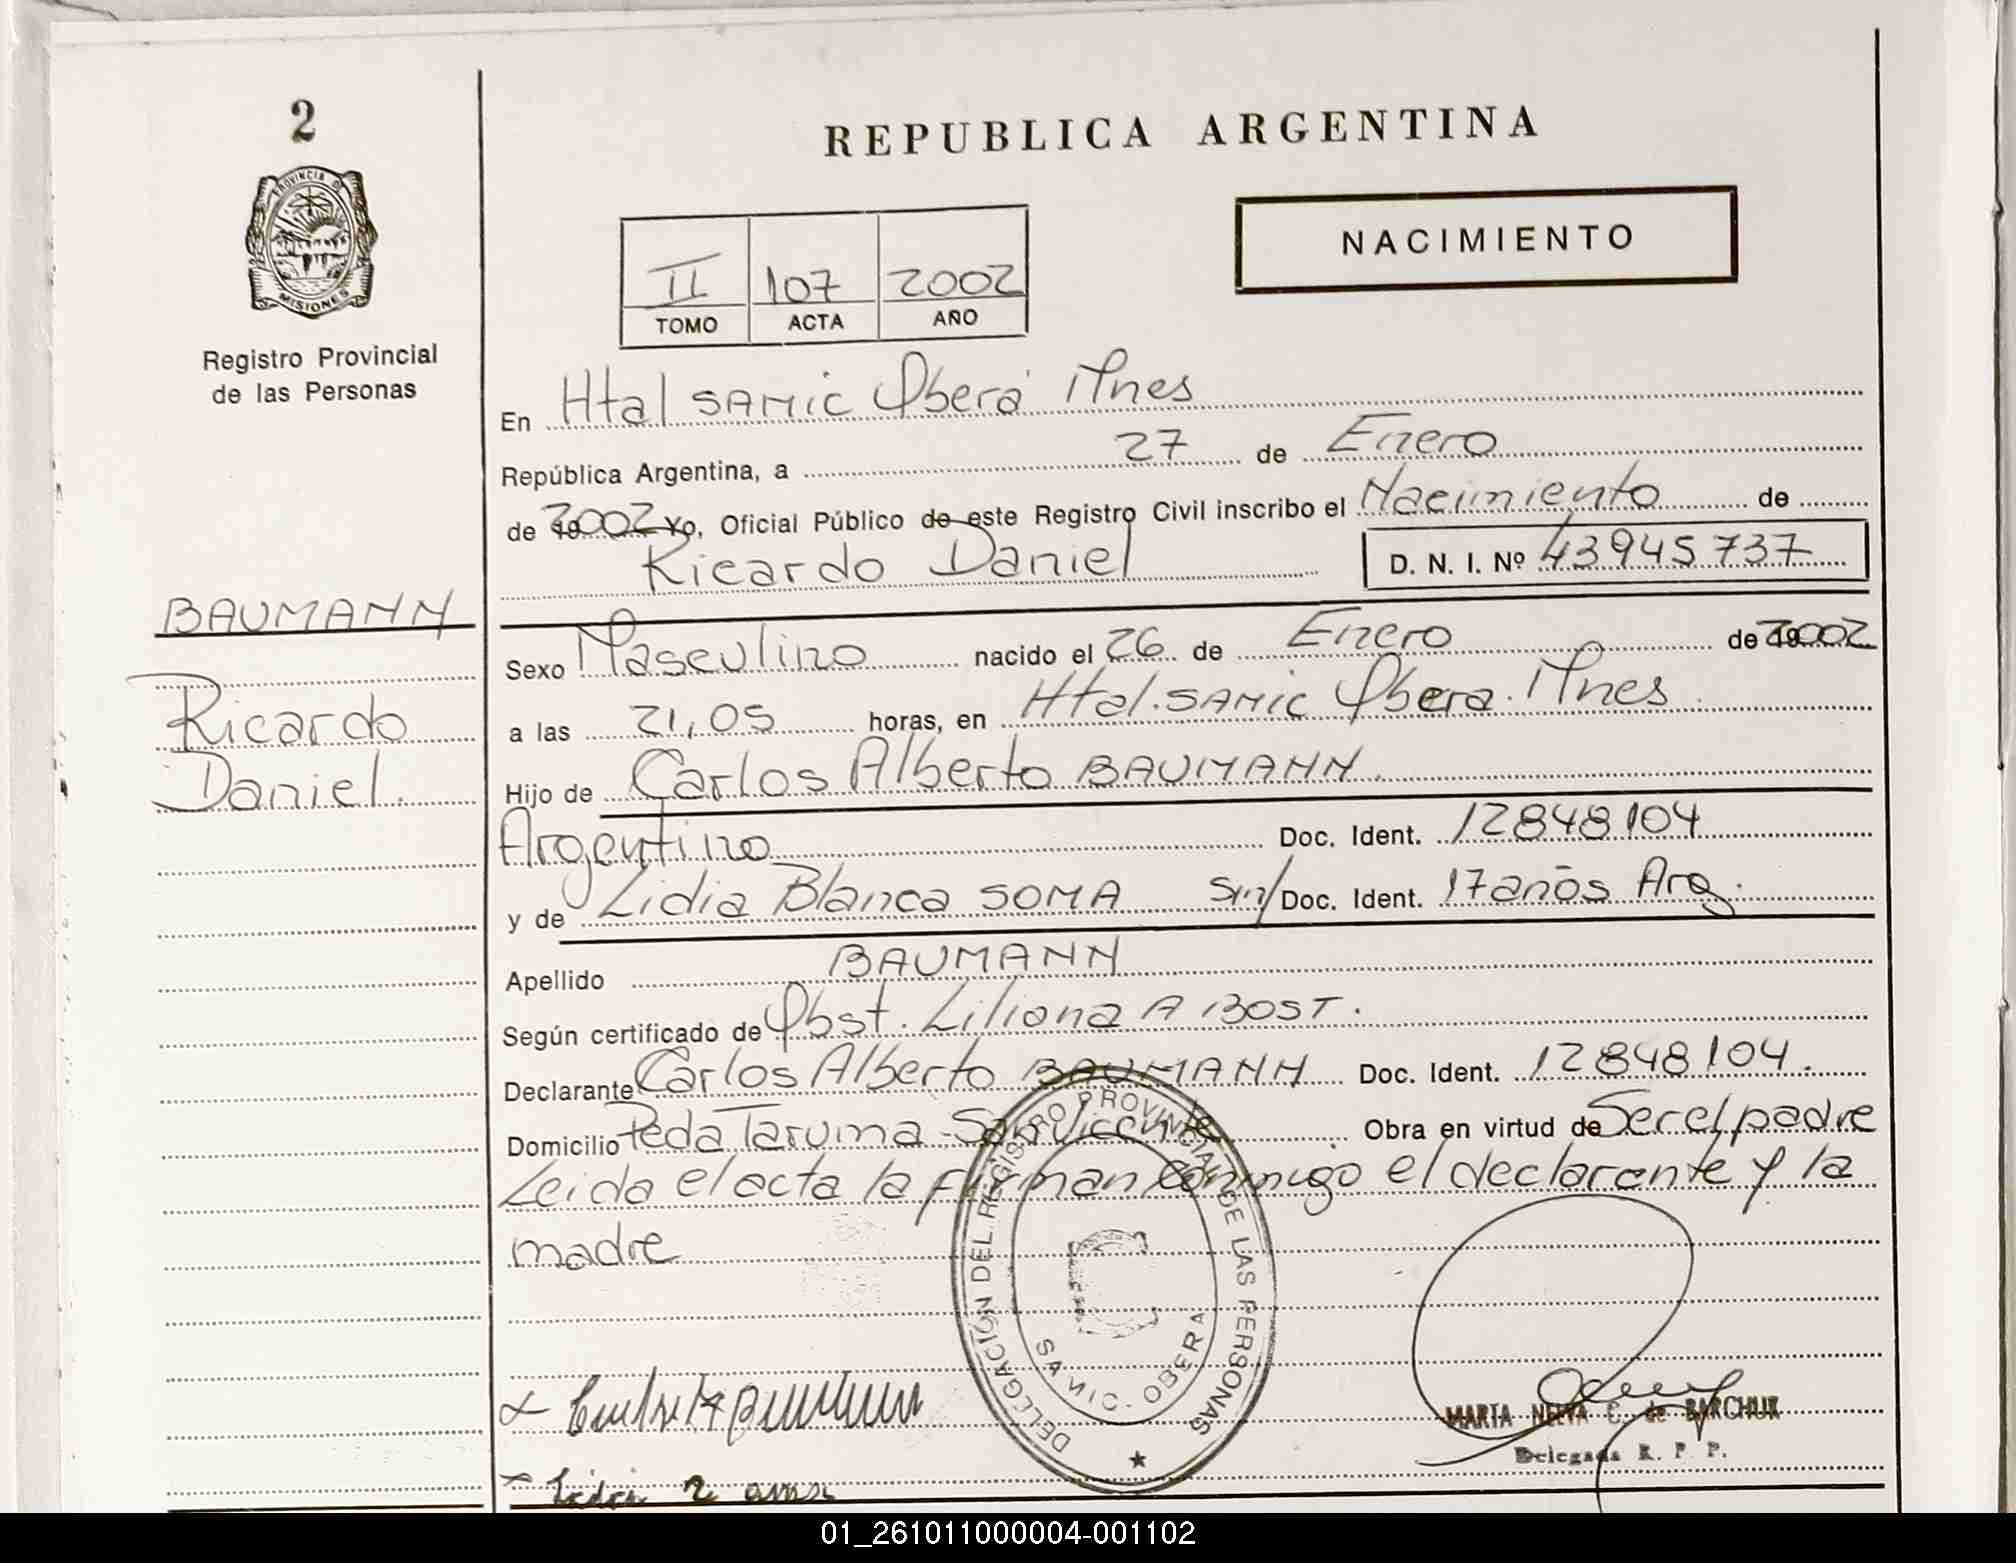 2
REPUBLICA ARGENTINA
PROVINCIA DE
MISIONES
Registro Provincial
de las Personas
NACIMIENTO
II 107 2002
TOMO ACTA AÑO
En Htal SAMIC Oberá Mnes
República Argentina, a 27 de Enero
de 2002 Yo, Oficial Público de este Registro Civil inscribo el Nacimiento de
Ricardo Daniel D. N. I. Nº 43945737
BAUMANN
Ricardo
Daniel.
Sexo Masculino nacido el 26 de Enero de 2002
a las 21,05 horas, en Htal. SAMIC Oberá. Mnes
Hijo de Carlos Alberto BAUMANN.
Argentino Doc. Ident. 12848104
y de Lidia Blanca SOMA Sin/ Doc. Ident. 17 años Arg.
Apellido BAUMANN
Según certificado de Obst. Liliana A BOST.
Declarante Carlos Alberto BAUMANN Doc. Ident. 12848104.
Domicilio Peda Taruma - San Vicente Obra en virtud de Ser el padre
Leida el acta la firman conmigo el declarante y la
madre
DELEGACIÓN DEL REGISTRO PROVINCIAL DE LAS PERSONAS
SAMIC. OBERA
MARTA NELVA C. de BARCHUK
Delegada R. P. P.
01_261011000004-001102